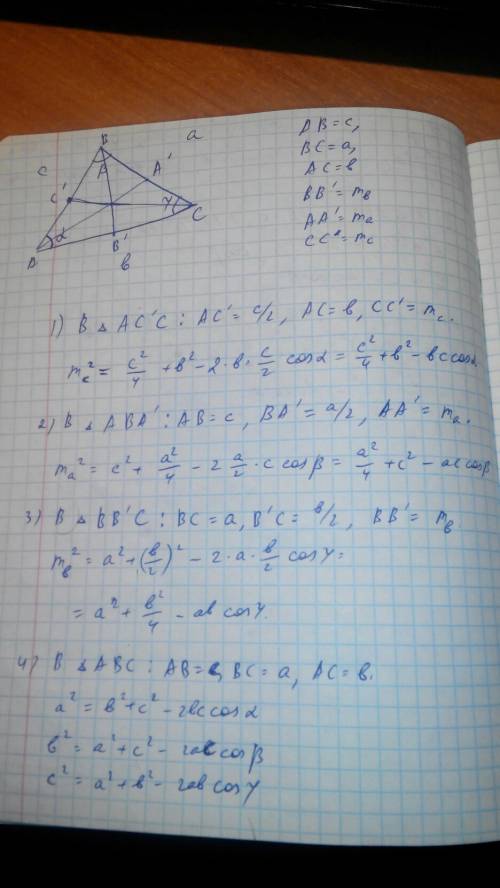 B
a
AB=c,
BC=a,
AC=в
BB'=mв
AA'=ma
CC'=mc
c
β
A'
C'
γ
C
A
α
B'
в
1) В △ AC'C : AC'= c/2, AC=в, CC'=mc.
mc² = c²/4 + в² - 2·в·c/2 cosα = c²/4 + в² - вc cosα
2) В △ ABA' : AB=c, BA'= a/2, AA'= ma.
ma² = c² + a²/4 - 2 a/2 · c cosβ = a²/4 + c² - ac cosβ
3) В △ BB'C : BC=a, B'C= в/2, BB'= mв
mв² = a² + (в/2)² - 2·a·в/2 cosγ =
= a² + в²/4 - aв cosγ.
4) В △ ABC : AB=c, BC=a, AC=в.
a² = в² + c² - 2вc cosα
в² = a² + c² - 2ac cosβ
c² = a² + в² - 2aв cosγ